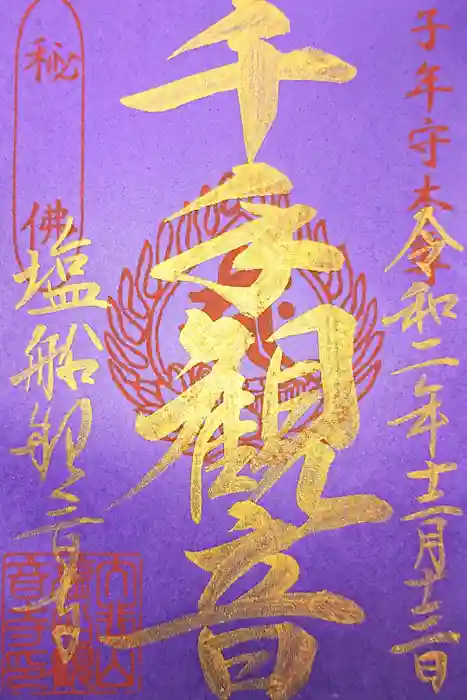 子年守本尊
令和二年十二月十三日
千手観音
秘佛
塩船観音寺
大悲山